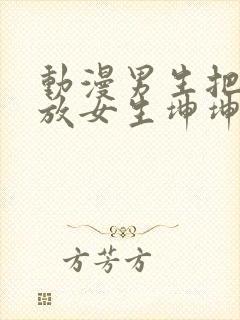 動漫男生把
放女生坤坤
方芳方